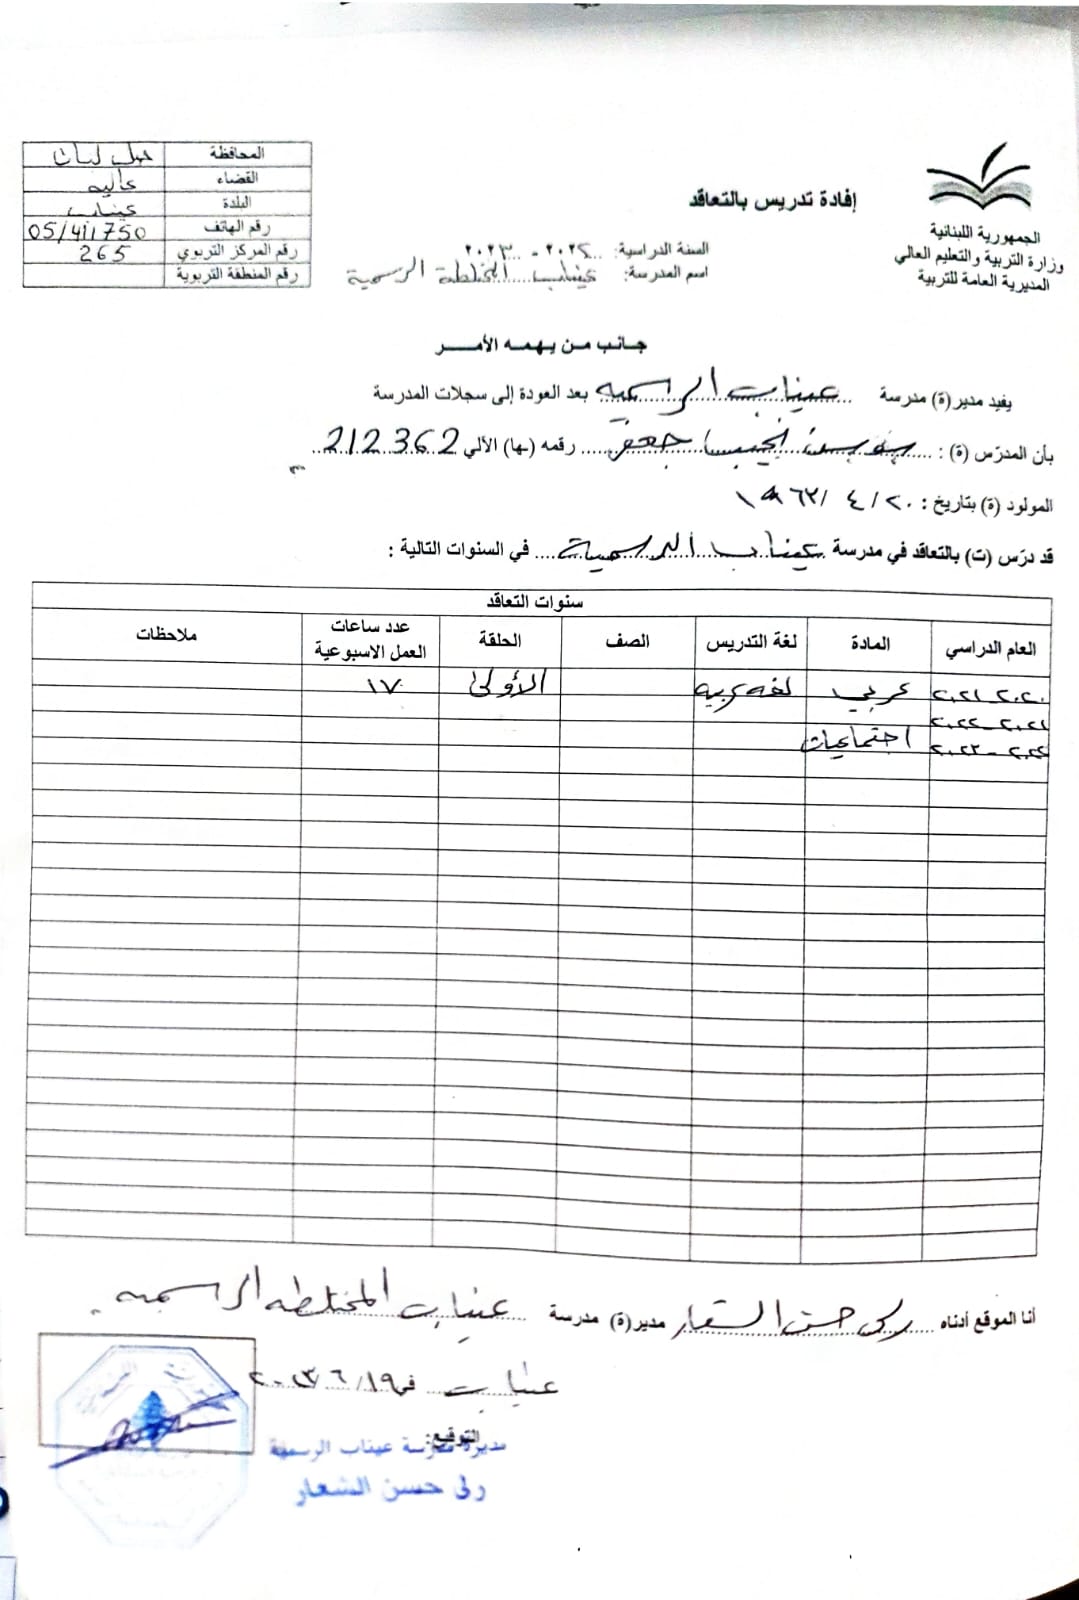 الجمهورية اللبنانية
وزارة التربية والتعليم العالي
المديرية العامة للتربية
إفادة تدريس بالتعاقد
السنة الدراسية: ٢٠٢٢ - ٢٠٢٣
اسم المدرسة: عيناب المختلطة الرسمية
المحافظة جبل لبنان
القضاء عاليه
البلدة عيناب
رقم الهاتف 05/411750
رقم المركز التربوي 265
رقم المنطقة التربوية
جانب من يهمه الأمر
يفيد مدير(ة) مدرسة عيناب الرسمية بعد العودة إلى سجلات المدرسة
بأن المدرّس (ة) : سوسن نجيب جعفر رقمه (ـها) الآلي 212362
المولود (ة) بتاريخ : ٢٠/ ٤ /١٩٦٢
قد درّس (ت) بالتعاقد في مدرسة عيناب الرسمية في السنوات التالية :
سنوات التعاقد
العام الدراسي المادة لغة التدريس الصف الحلقة عدد ساعات العمل الاسبوعية ملاحظات
٢٠٢٠-٢٠٢١ عربي لغة عربية الأولى ١٧
٢٠٢١-٢٠٢٢
٢٠٢٢-٢٠٢٣ اجتماعيات
أنا الموقع أدناه رلى حسن الشعار مدير(ة) مدرسة عيناب المختلطة الرسمية
عيناب في ١٩/ ٦/ ٢٠٢٣
التوقيع:
مديرة مدرسة عيناب الرسمية
رلى حسن الشعار